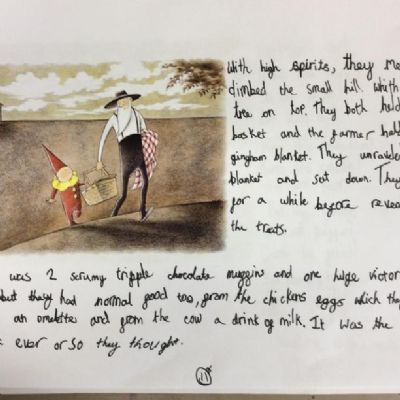 With high spirits, they me
climbed the small hill whith
tree on top. They both held
basket and the farmer held
gingham blanket. They unraveled
blanket and sat down. They
for a while before revea
the treats.
was 2 scrumy tripple chocolate muggins and one huge victor
but they had normal good too, from the chickens eggs which they
an omelttes and from the cow a drink of milk. It was the
ever or so they thought.
11